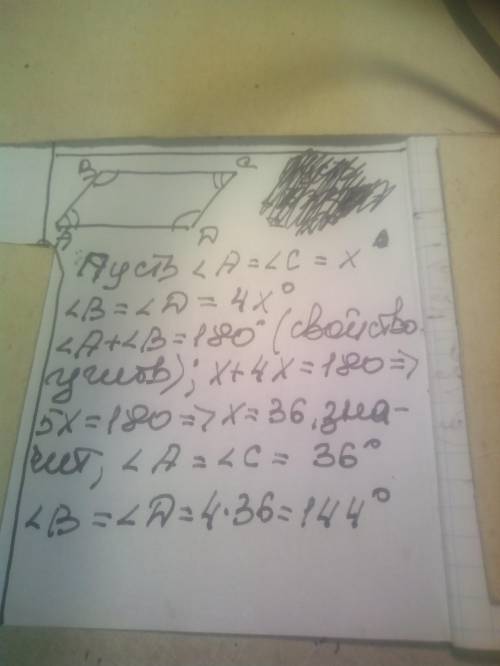 B C
A D
Пусть ∠A = ∠C = x
∠B = ∠D = 4x°
∠A+∠B = 180° (свойство
); x+4x = 180 =>
5x = 180 => x = 36, зна-
чит, ∠A = ∠C = 36°
∠B = ∠D = 4·36 = 144°